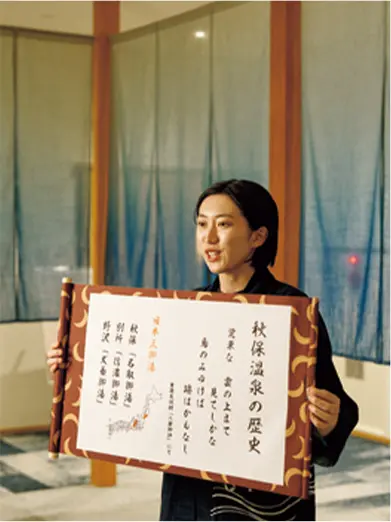 秋保温泉の歴史
覚束な 雲の上まで
見てしかな
鳥のみゆけば
跡はかもなし
日本三御湯
秋保「名取御湯」
別所「信濃御湯」
野沢「犬養御湯」